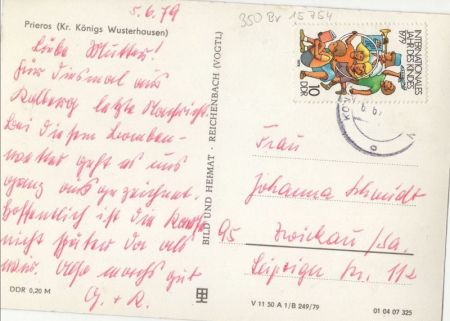 5.6.79
350 Br 15754
Prieros (Kr. Königs Wusterhausen)
Liebe Mutter!
Für diesmal aus
Kolberg letzte Nachricht.
Bei diesem Bomben-
wetter geht es uns
ganz ausgezeichnet.
Hoffentlich ist die Karte
nicht später da als
wir. Also machs gut
G. + R.
DDR 0,20 M
BILD UND HEIMAT · REICHENBACH (VOGTL)
INTERNATIONALES
JAHR DES KINDES
1979
10
DDR
Frau
Johanna Schmidt
95 Zwickau /Sa.
Leipziger Str. 112
V 11 50 A 1/B 249/79
01 04 07 325